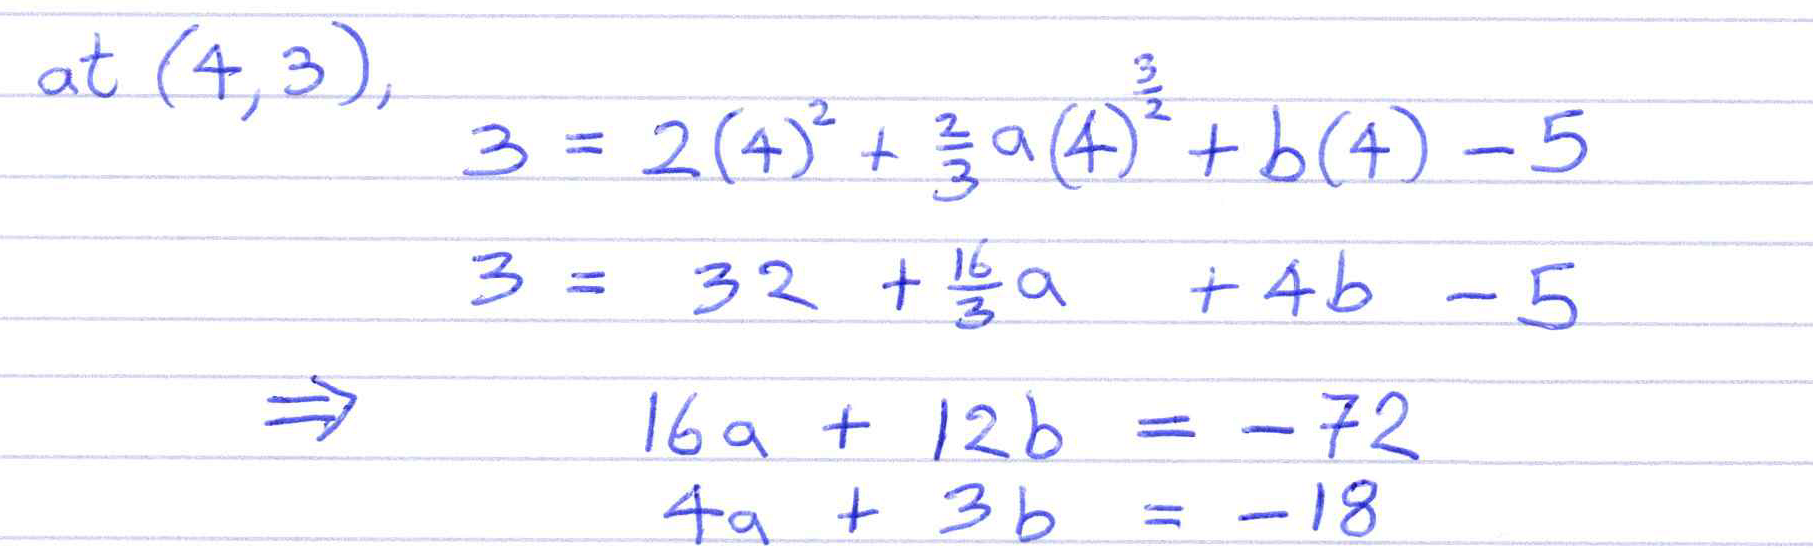 at (4,3),
3 = 2(4)² + 2/3 a(4)^(3/2) + b(4) - 5
3 = 32 + 16/3 a + 4b - 5
⇒ 16a + 12b = -72
4a + 3b = -18